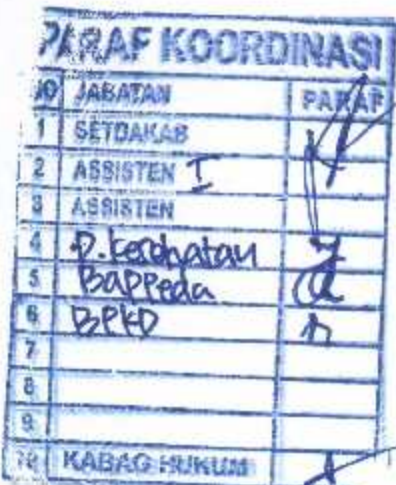 PARAF KOORDINASI
NO JABATAN PARAF
1 SETDAKAB
2 ASSISTEN I
3 ASSISTEN
4 D. kesehatan
5 Bappeda
6 BPKD
7
8
9
10 KABAG HUKUM